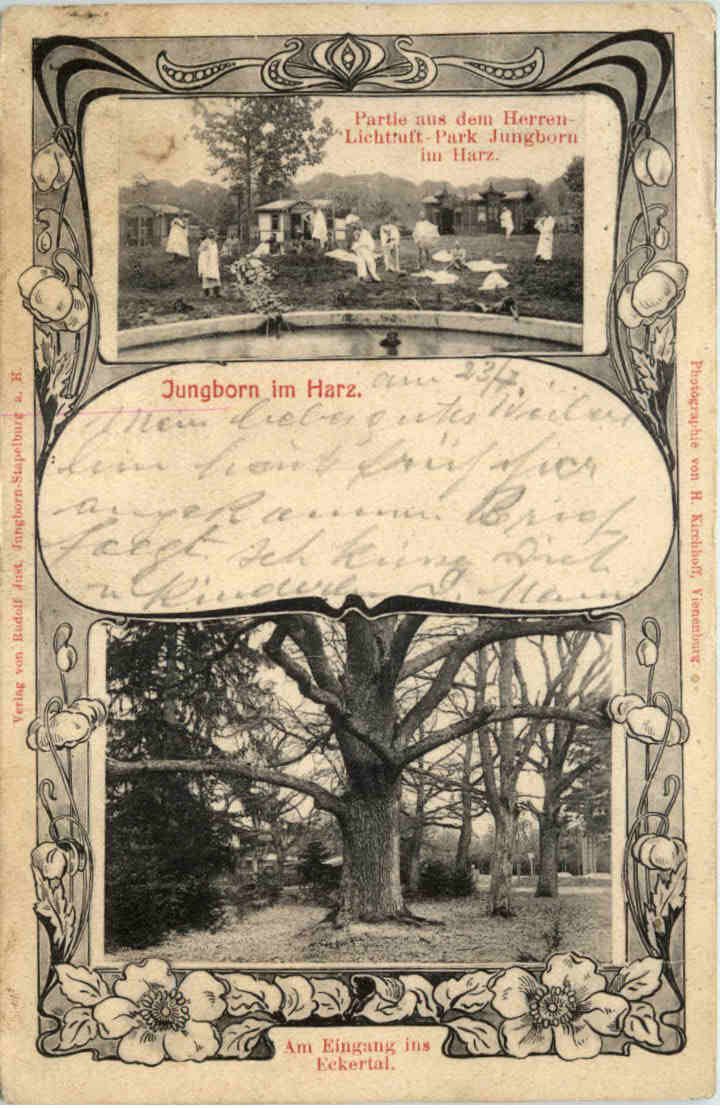 Partie aus dem Herren-
Lichtluft-Park Jungborn
im Harz.
Jungborn im Harz.
am 23/7.
Mein liebes gutes
bin heut früh hier
angekommen Brief
folgt. Ich küsse Dich
u Kinderlein
Am Eingang ins
Eckertal.
Verlag von Rudolf Just, Jungborn-Stapelburg a. H.
Photographie von H. Kirchhoff, Vienenburg